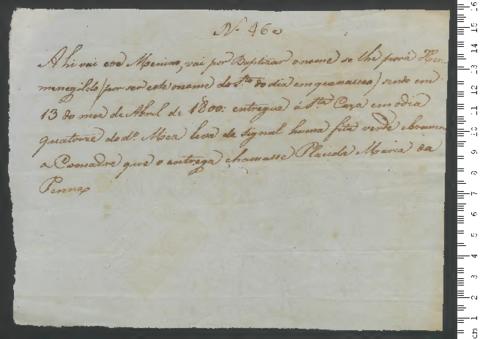 Nº 460
Ahi vai este Menino, vai por Baptizar o nome se lhe porá Her
menegildo (por ser este o nome do Stº do dia em que nasceo) sendo em
13 do mes de Abril de 1800: entregue á Stª Caza em o dia
quatorze do dº. Mez leva de signal huma fita verde e branca
a Comadre que o entrega chamasse Placida Maria da
Penna
cm 1 2 3 4 5 6 7 8 9 10 11 12 13 14 15 16